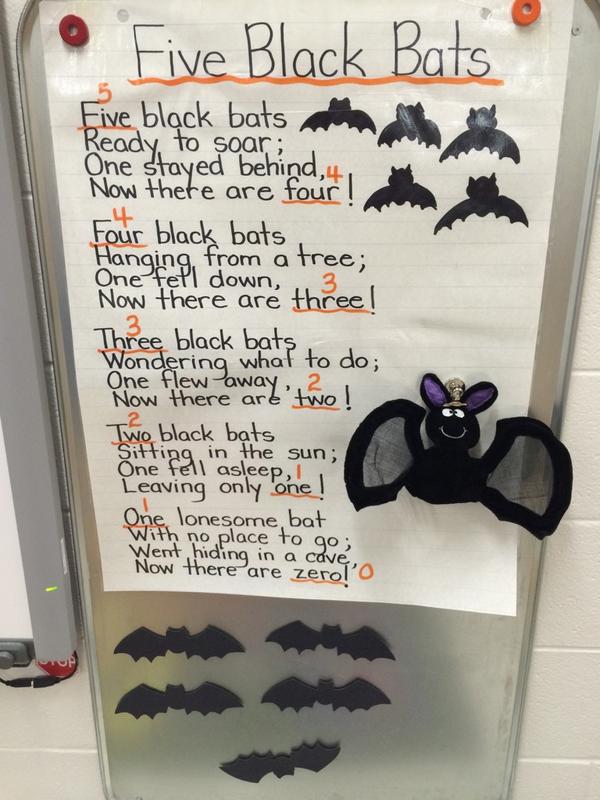 Five Black Bats
5
Five black bats
Ready to soar;
One stayed behind,
4
Now there are four!
4
Four black bats
Hanging from a tree;
One fell down,
3
Now there are three!
3
Three black bats
Wondering what to do;
One flew away,
2
Now there are two!
2
Two black bats
Sitting in the sun;
One fell asleep,
1
Leaving only one!
1
One lonesome bat
With no place to go;
Went hiding in a cave,
Now there are zero! 0